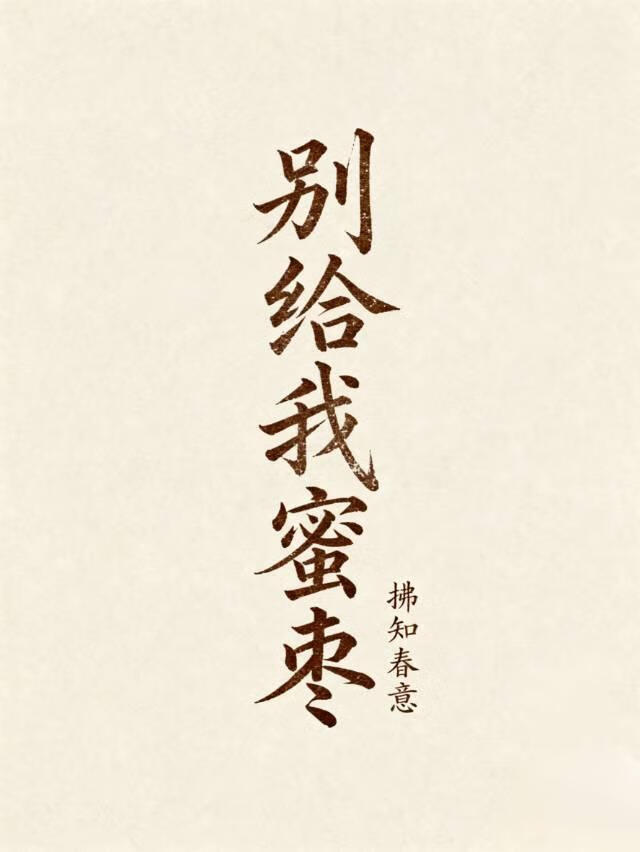 别给我蜜枣
拂知春意